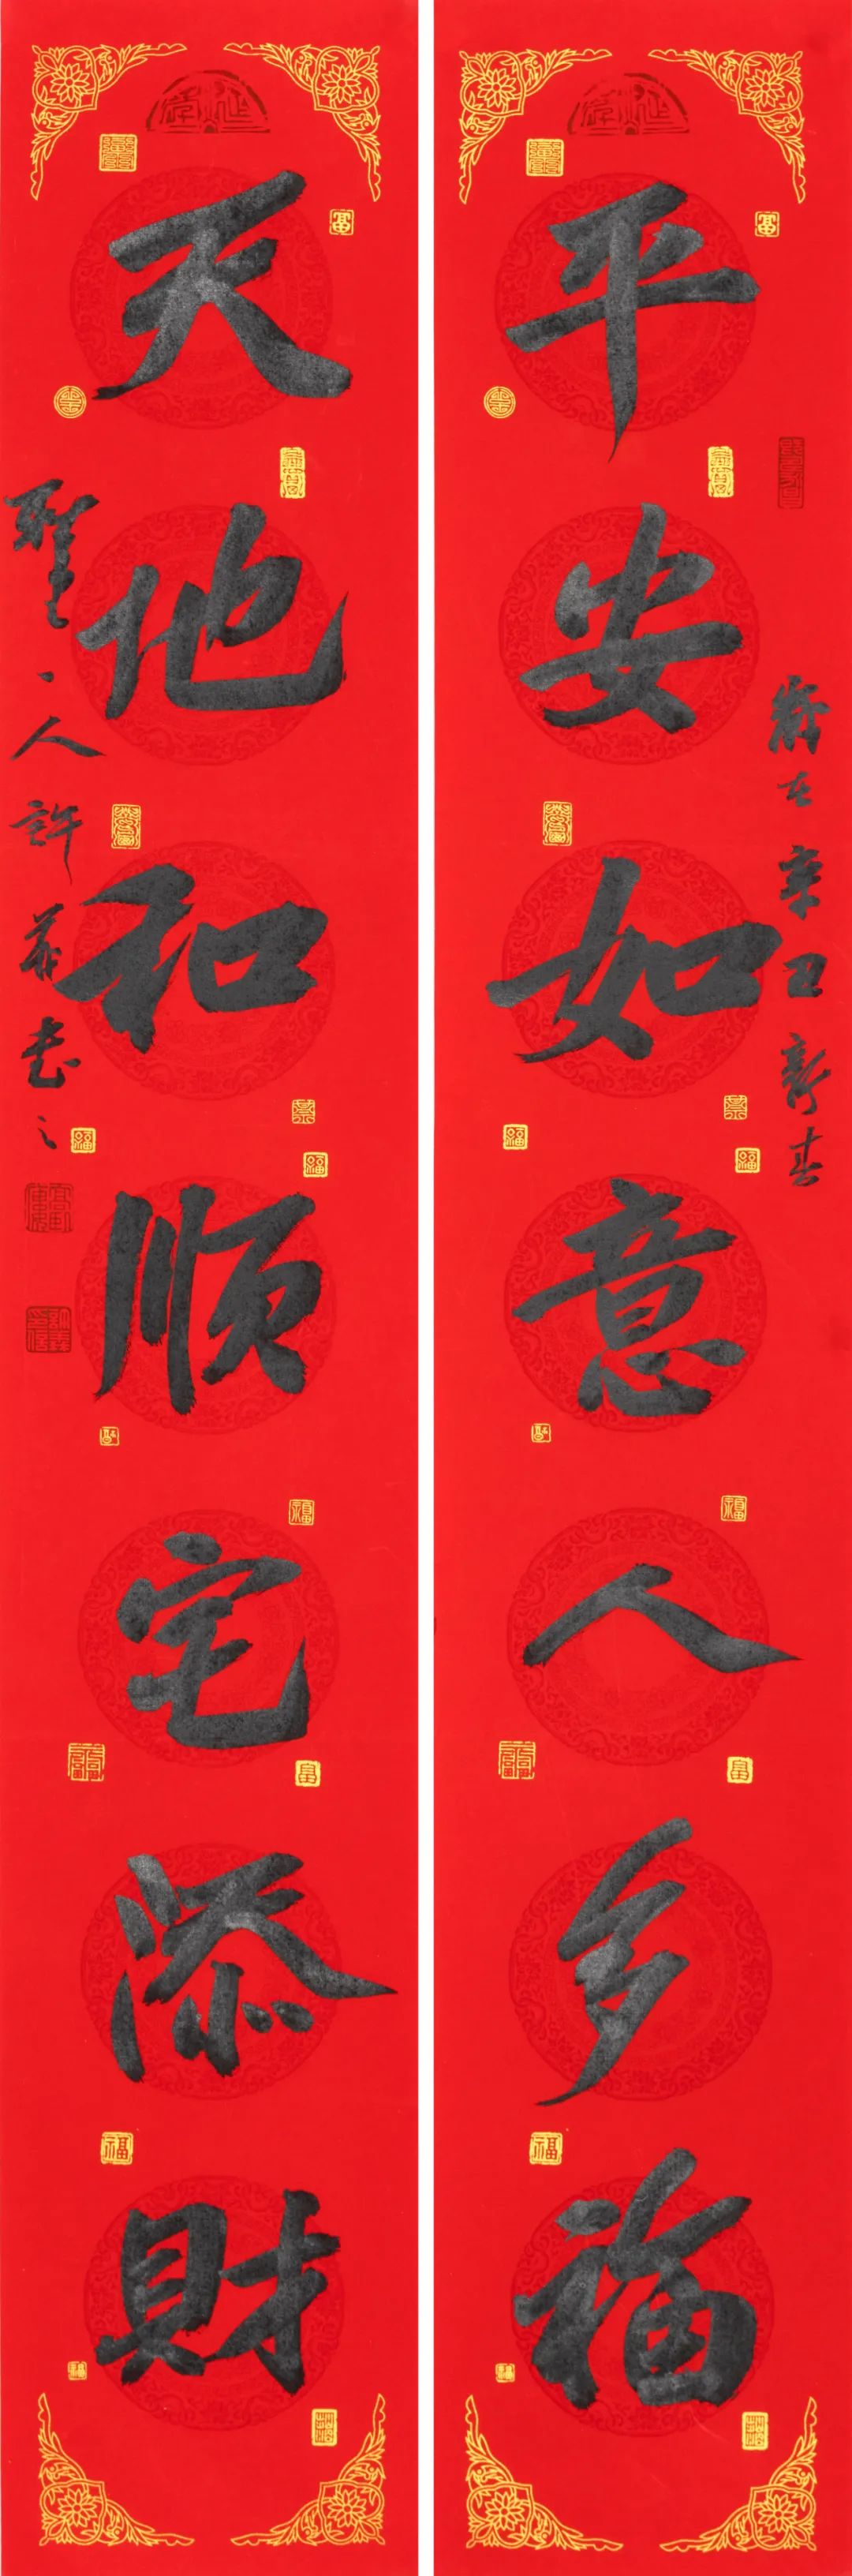 歲在辛丑新春
平安如意人多福
天地和順宅添財
人許書之